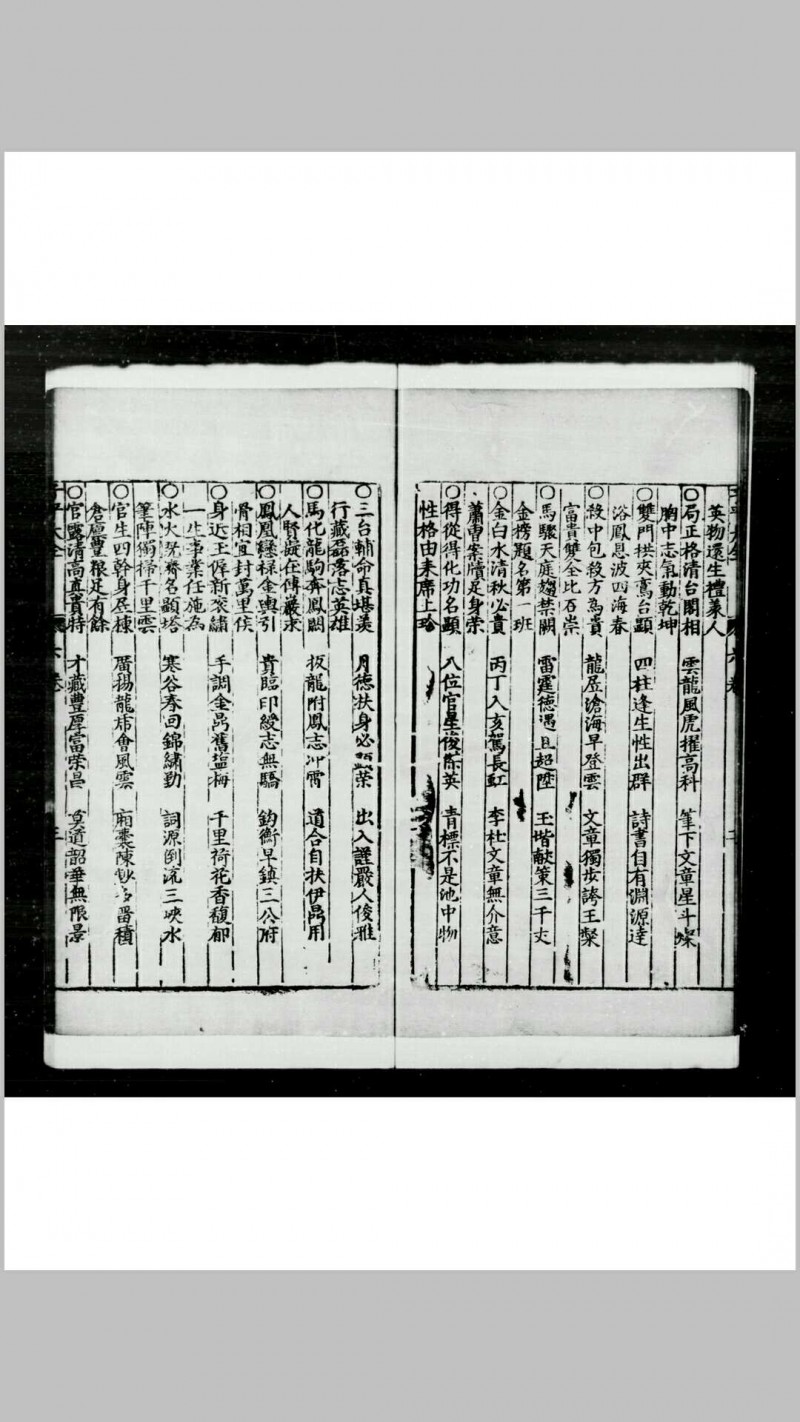 英物還生禮義人
○局正格清台閣相　雲龍風虎擢高科　筆下文章星斗燦
胸中志氣動乾坤
○雙門拱夾鸞台顯　四柱逢生性出群　詩書自有淵源達
浴鳳恩波四海春
○殺中包殺方為貴　龍居滄海早登雲　文章獨步誇王粲
富貴雙全比石崇
○馬驟天庭趨禁闕　雷霆德遇且超陞　王堦献策三千丈
金榜題名第一班
○金白水清秋必貴　丙丁入亥駕長虹　李杜文章無介意
蕭曹案牘足身荣
○得從得化功名顯　八位官星俊英　青標不是池中物
性格由来席上珍
○三台輔命真堪羡　月德扶身必荣　出入謹嚴人俊雅
行藏磊落志英雄
○馬化龍駒奔鳳闕　扳龍附鳳志冲霄　道合自扶伊鼎用
人賢凝在傅巖求
○鳳凰戀禄金輿引　貴臨印綬志無驕　鈞衡早鎮三公府
骨相宜封萬里侯
○身近王偓新衮繡　手調金鼎舊塩梅　千里荷花香馥郁
一生事業任施為
○水火既濟名顯塔　寒谷春回錦繡勤　詞源倒流三峽水
筆陣獨掃千里雲
○官生四幹身居棟　鷹揚龍席會風雲　廂裹陳鈔多番積
倉廩豐粮足有餘
○官露清高真貴特　才藏豐厚富荣昌　莫道韶華無限景
六卷